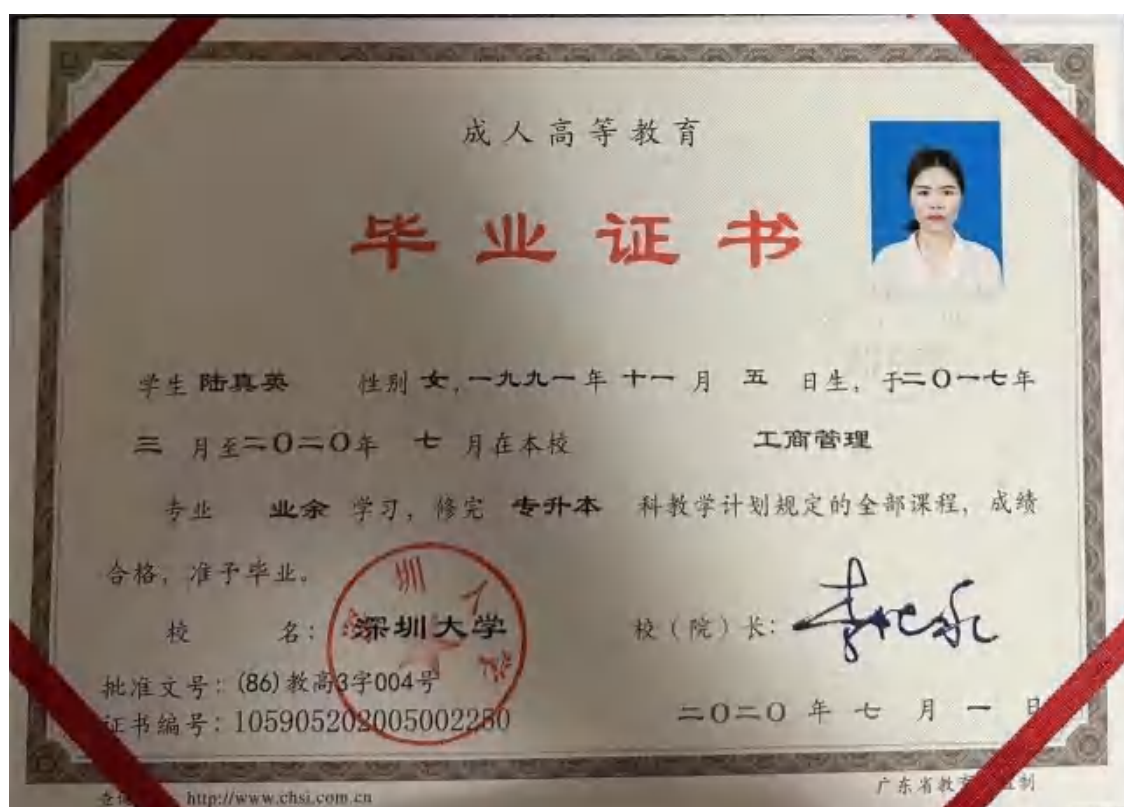 成人高等教育
毕业证书
学生 陆真英 性别 女,一九九一年 十一 月 五 日生, 于二〇一七年
三 月至二〇二〇年 七 月在本校 工商管理
专业 业余 学习, 修完 专升本 科教学计划规定的全部课程, 成绩
合格, 准予毕业。
校 名: 深圳大学 校(院)长:
批准文号: (86)教高3字004号
证书编号: 105905202005002250 二〇二〇 年 七 月 一 日
http://www.chsi.com.cn 广东省教 制